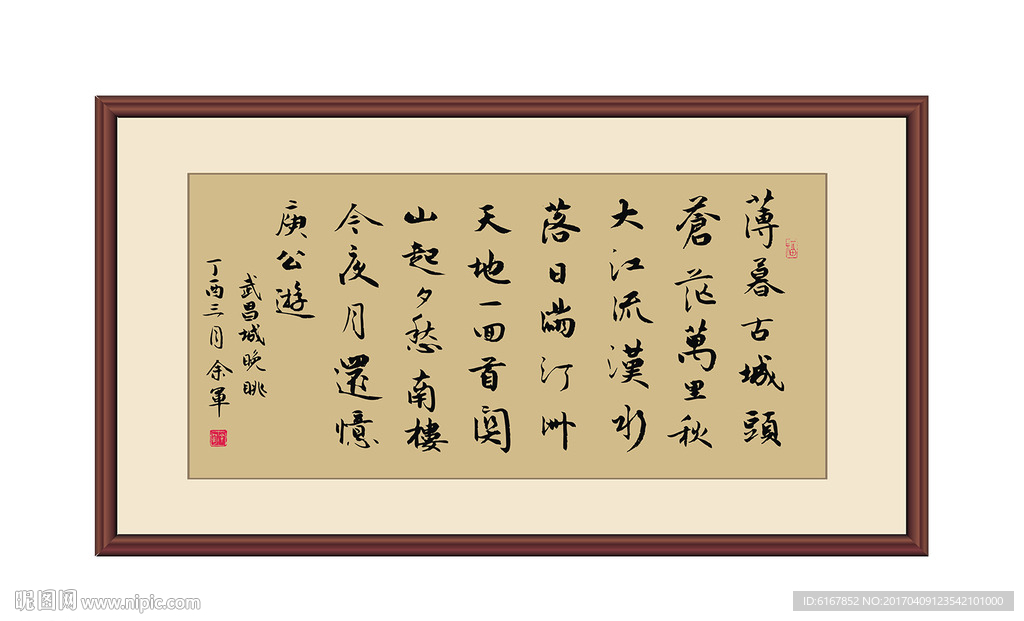 薄暮古城頭
蒼茫萬里秋
大江流漢水
落日滿汀州
天地一回首関
山起夕愁南樓
今夜月還憶
庾公遊
武昌城晚眺
丁酉三月余軍
昵图网 www.nipic.com
ID:6167852 NO:20170409123542101000